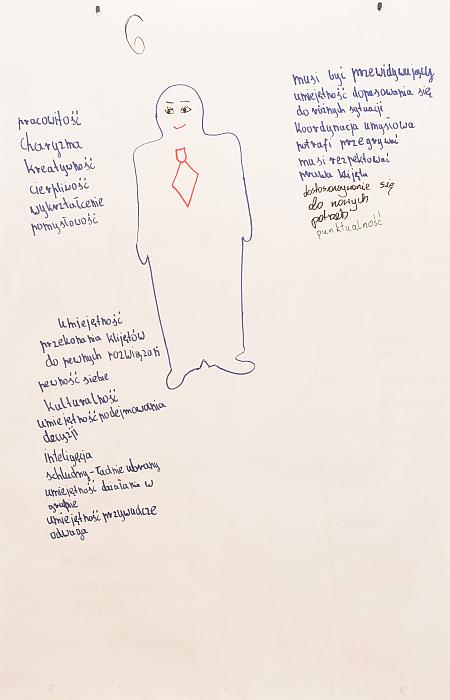 6
pracowitość
Charyzma
kreatywność
cierpliwość
wykształcenie
pomysłowość
musi być przewidywujący
umiejętność dopasowania się
do różnych sytuacji
koordynacja umysłowa
potrafi przegrywać
musi rezpektować
prawa klijęta
dostosowywanie się
do nowych
potrzeb
punktualność
Umiejętność
przekonania klijętów
do pewnych rozwiązań
pewność siebie
kulturalność
umiejętność podejmowania
decyzji
inteligęcja
schludny-ładnie ubrany
umiejętność działania w
grupie
umiejętność przywudcze
odwaga